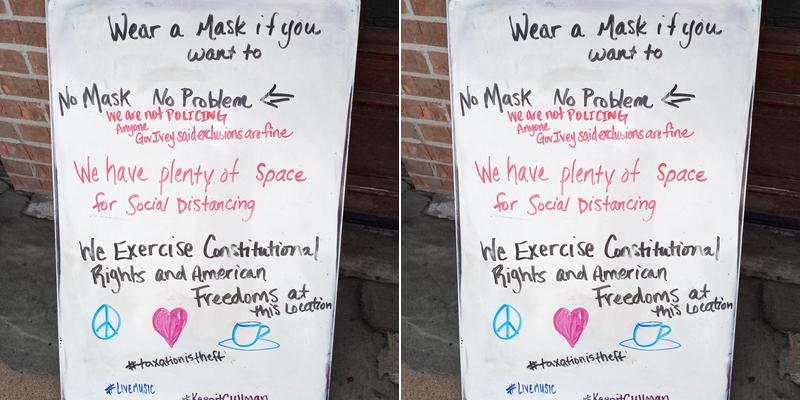 Wear a Mask if you
want to
No Mask No Problem
We are not POLICING
Anyone
Gov. Ivey said exclusions are fine
We have plenty of Space
for Social Distancing
We Exercise Constitutional
Rights and American
Freedoms at
this Location
#taxationistheft
#LIVEMUSIC
#KeepitCullman
Wear a Mask if you
want to
No Mask No Problem
We are not POLICING
Anyone
Gov. Ivey said exclusions are fine
We have plenty of Space
for Social Distancing
We Exercise Constitutional
Rights and American
Freedoms at
this Location
#taxationistheft
#LIVEMUSIC
#KeepitCullman